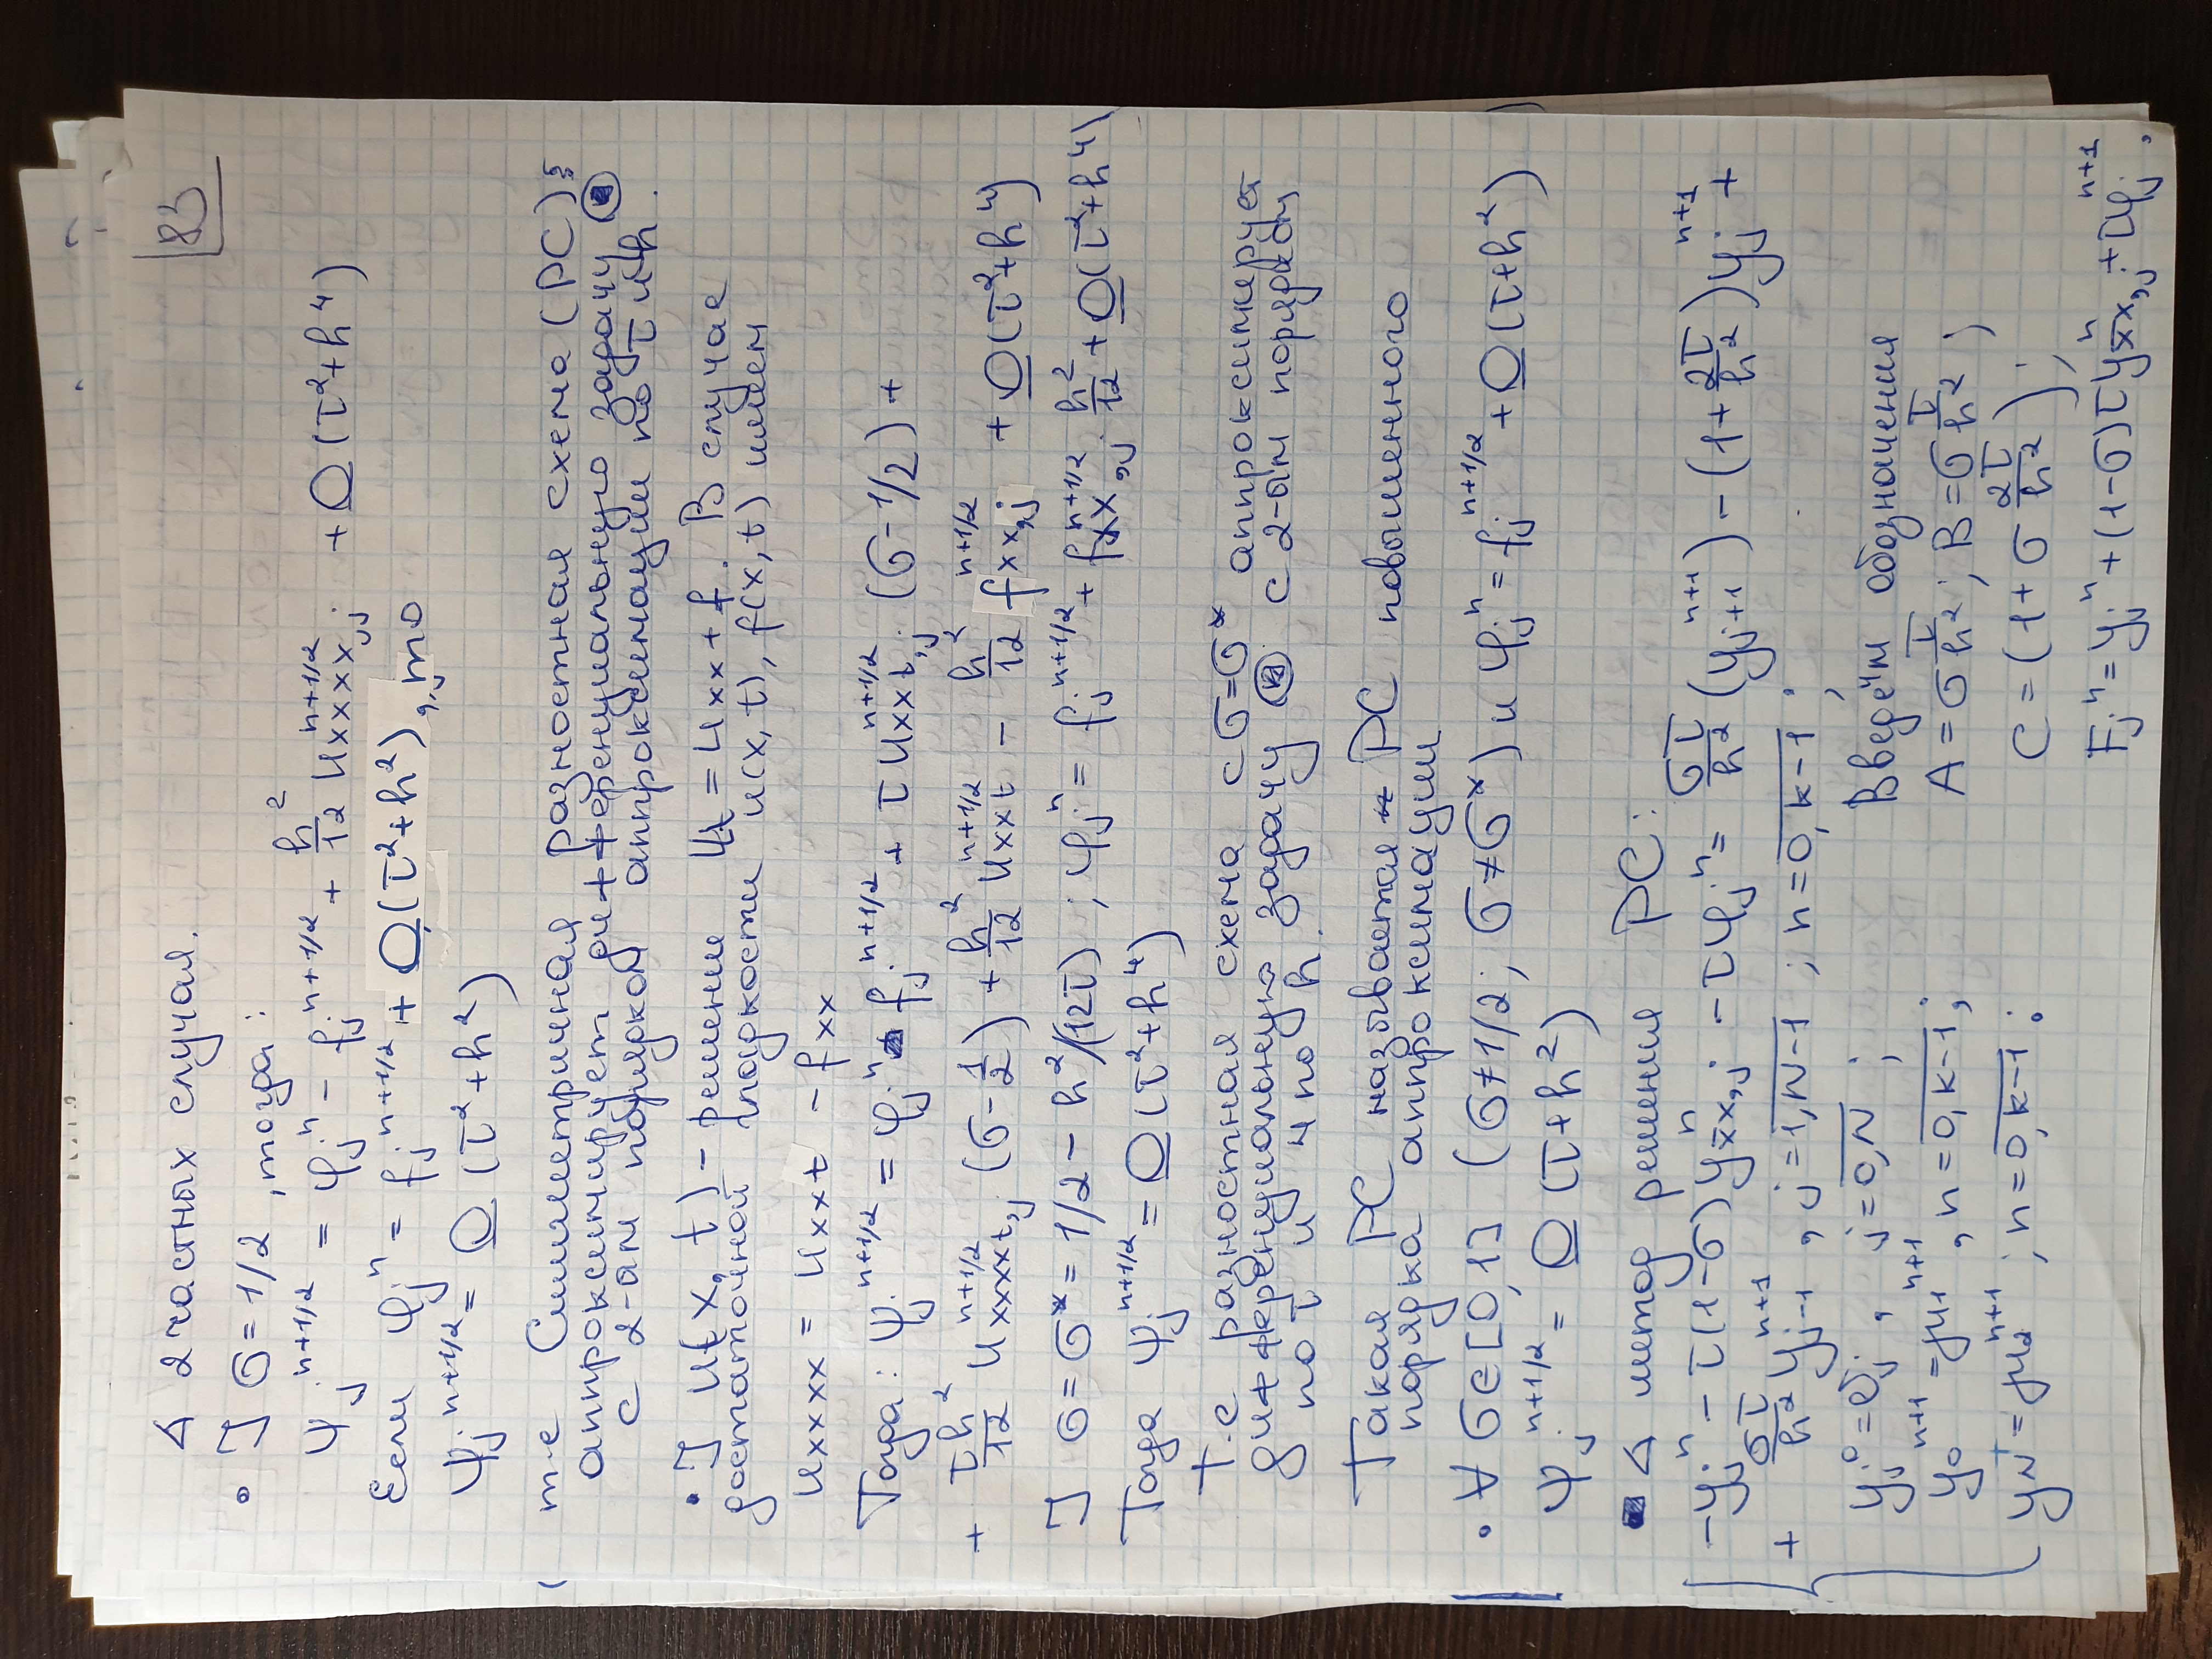 83
Δ 2 частных случая.
• ] σ = 1/2, тогда:
ψ_j^{n+1/2} = φ_j^n - f_j^{n+1/2} + h²/12 u_{xxxx,j}^{n+1/2} + O(τ²+h⁴)
Если φ_j^n = f_j^{n+1/2} + O(τ²+h²), то
ψ_j^{n+1/2} = O(τ²+h²)
т-е Симметричная разностная схема (РС)
аппроксимирует дифференциальную задачу
с 2-ам порядком аппроксимации по τ и h.
• ] u(x,t) - решение u_t = u_xx + f. В случае
достаточной гладкости u(x,t), f(x,t) имеем
u_xxxx = u_xxt - f_xx
Тогда: ψ_j^{n+1/2} = φ_j^n - f_j^{n+1/2} + τ u_{xxt,j}^{n+1/2} (σ-1/2) +
+ τh²/12 u_{xxxxt,j}^{n+1/2} (σ-1/2) + h²/12 u_{xxt}^{n+1/2} - h²/12 f_{xx,j}^{n+1/2} + O(τ²+h⁴)
] σ = σ* = 1/2 - h²/(12τ) ; φ_j^n = f_j^{n+1/2} + f_{xx,j}^{n+1/2} h²/12 + O(τ²+h⁴)
Тогда ψ_j^{n+1/2} = O(τ²+h⁴)
т.е разностная схема с σ=σ* аппроксимирует
дифференциальную задачу с 2-ам порядком
по τ и 4 по h.
Такая РС называется РС повышенного
порядка аппроксимации
• ∀ σ∈[0,1] (σ≠1/2; σ≠σ*) и φ_j^n = f_j^{n+1/2} + O(τ+h²)
ψ_j^{n+1/2} = O(τ+h²)
Δ метод решения РС:
-y_j^n - τ(1-σ)y_{x̄x,j}^n - τφ_j^n = στ/h² (y_{j+1}^{n+1}) - (1+2τ/h²)y_j^{n+1} +
+ στ/h² y_{j-1}^{n+1}, j=1,N-1 ; n=0,k-1 ;
y_j^0 = , j=0,N ;
y_0^{n+1} = μ_1^{n+1}, n=0,k-1 ;
y_N^{n+1} = μ_2^{n+1} ; n=0,k-1 ;
Введём обозначения
A = σ τ/h² ; B = σ τ/h² ;
C = (1+σ 2τ/h²) ;
F_j^n = y_j^n + (1-σ)τ y_{x̄x,j}^n + τφ_j^{n+1} ,